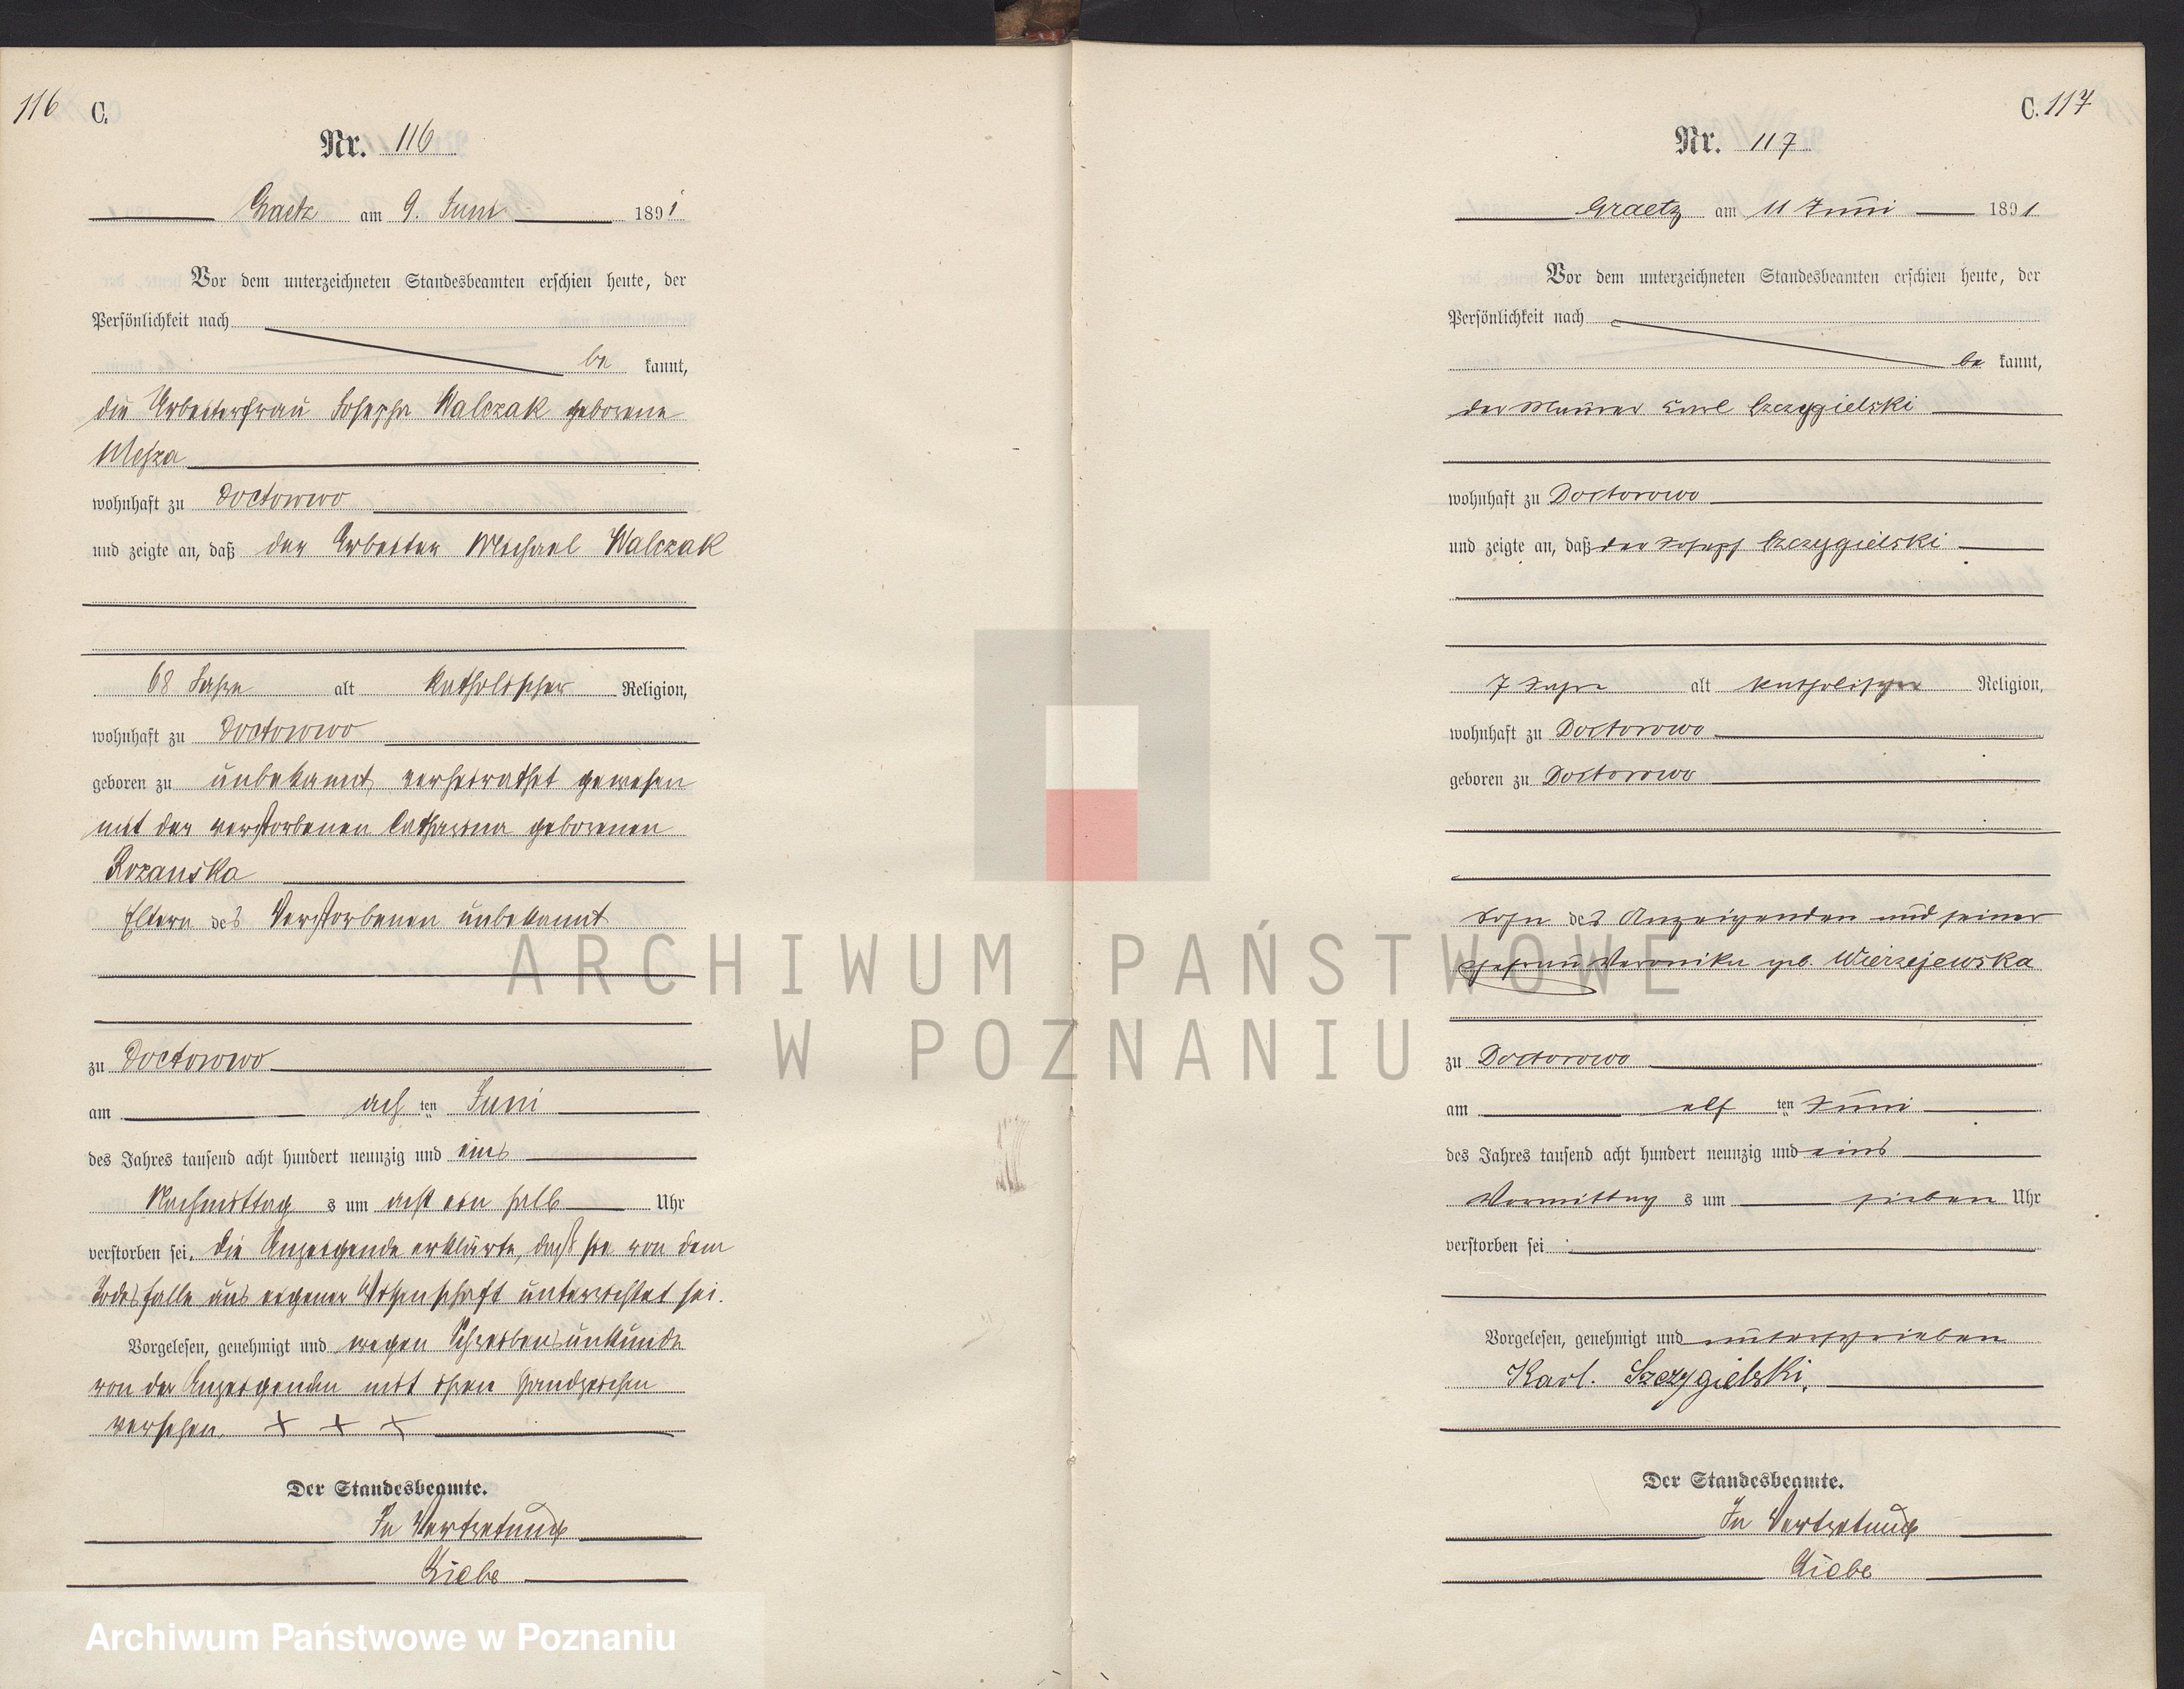 116 C.
Nr. 116
Graetz am 9. Juni 1891
Vor dem unterzeichneten Standesbeamten erschien heute, der
Persönlichkeit nach
be kannt,
die Arbeiterfrau Josepha Walczak geborene
wohnhaft zu Doctorowo
und zeigte an, daß der Arbeiter Michael Walczak
68 Jahre alt katholischer Religion,
wohnhaft zu Doctorowo
geboren zu unbekannt, verheirathet gewesen
mit der verstorbenen Catharina geborenen
Rozanska
Eltern des Verstorbenen unbekannt
zu Doctorowo
am ach ten Juni
des Jahres tausend acht hundert neunzig und eins
Nachmittag s um acht ein halb Uhr
verstorben sei. Die Anzeigende erklärte, daß sie von dem
Todesfalle aus eigener Wissenschaft unterrichtet sei.
Vorgelesen, genehmigt und wegen Schreibensunkunde
von der Anzeigenden mit ihren Handzeichen
versehen. + + +
Der Standesbeamte.
In Vertretung
Liebe
C. 117
Nr. 117
Graetz am 11 Juni 1891
Vor dem unterzeichneten Standesbeamten erschien heute, der
Persönlichkeit nach
be kannt,
der Maurer Carl Szczygielski
wohnhaft zu Doctorowo
und zeigte an, daß der Joseph Szczygielski
7 Jahre alt katholischer Religion,
wohnhaft zu Doctorowo
geboren zu Doctorowo
Sohn des Anzeigenden und seiner
Ehefrau Veronika geb. Wierzejewska
zu Doctorowo
am elf ten Juni
des Jahres tausend acht hundert neunzig und eins
Vormittag s um sieben Uhr
verstorben sei
Vorgelesen, genehmigt und unterschrieben
Karl. Szczygielski,
Der Standesbeamte.
In Vertretung
Liebe
ARCHIWUM PAŃSTWOWE
W POZNANIU
Archiwum Państwowe w Poznaniu